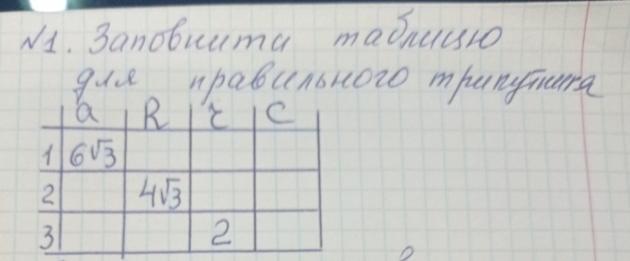 №1. Заповнити таблицю
для правильного трикутника
a R r C
1 6√3
2 4√3
3 2